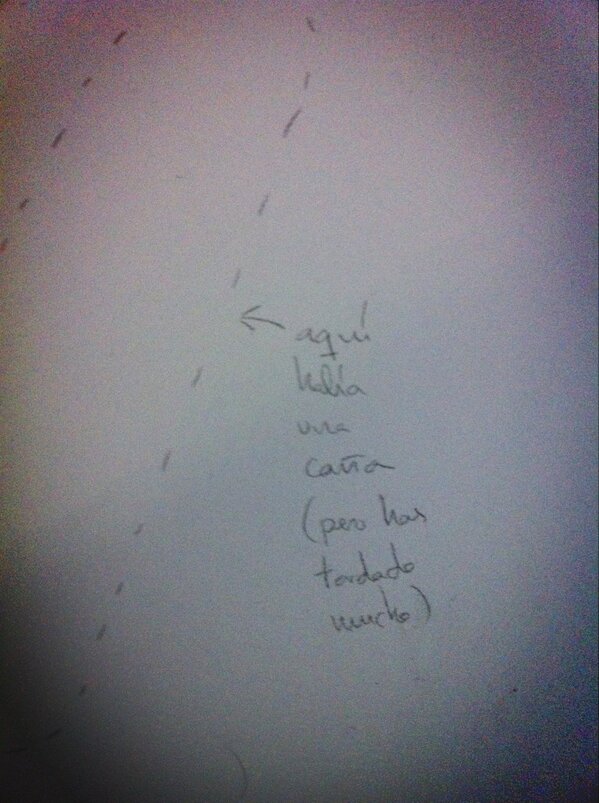 aquí
había
una
caña
(pero has
tardado
mucho)